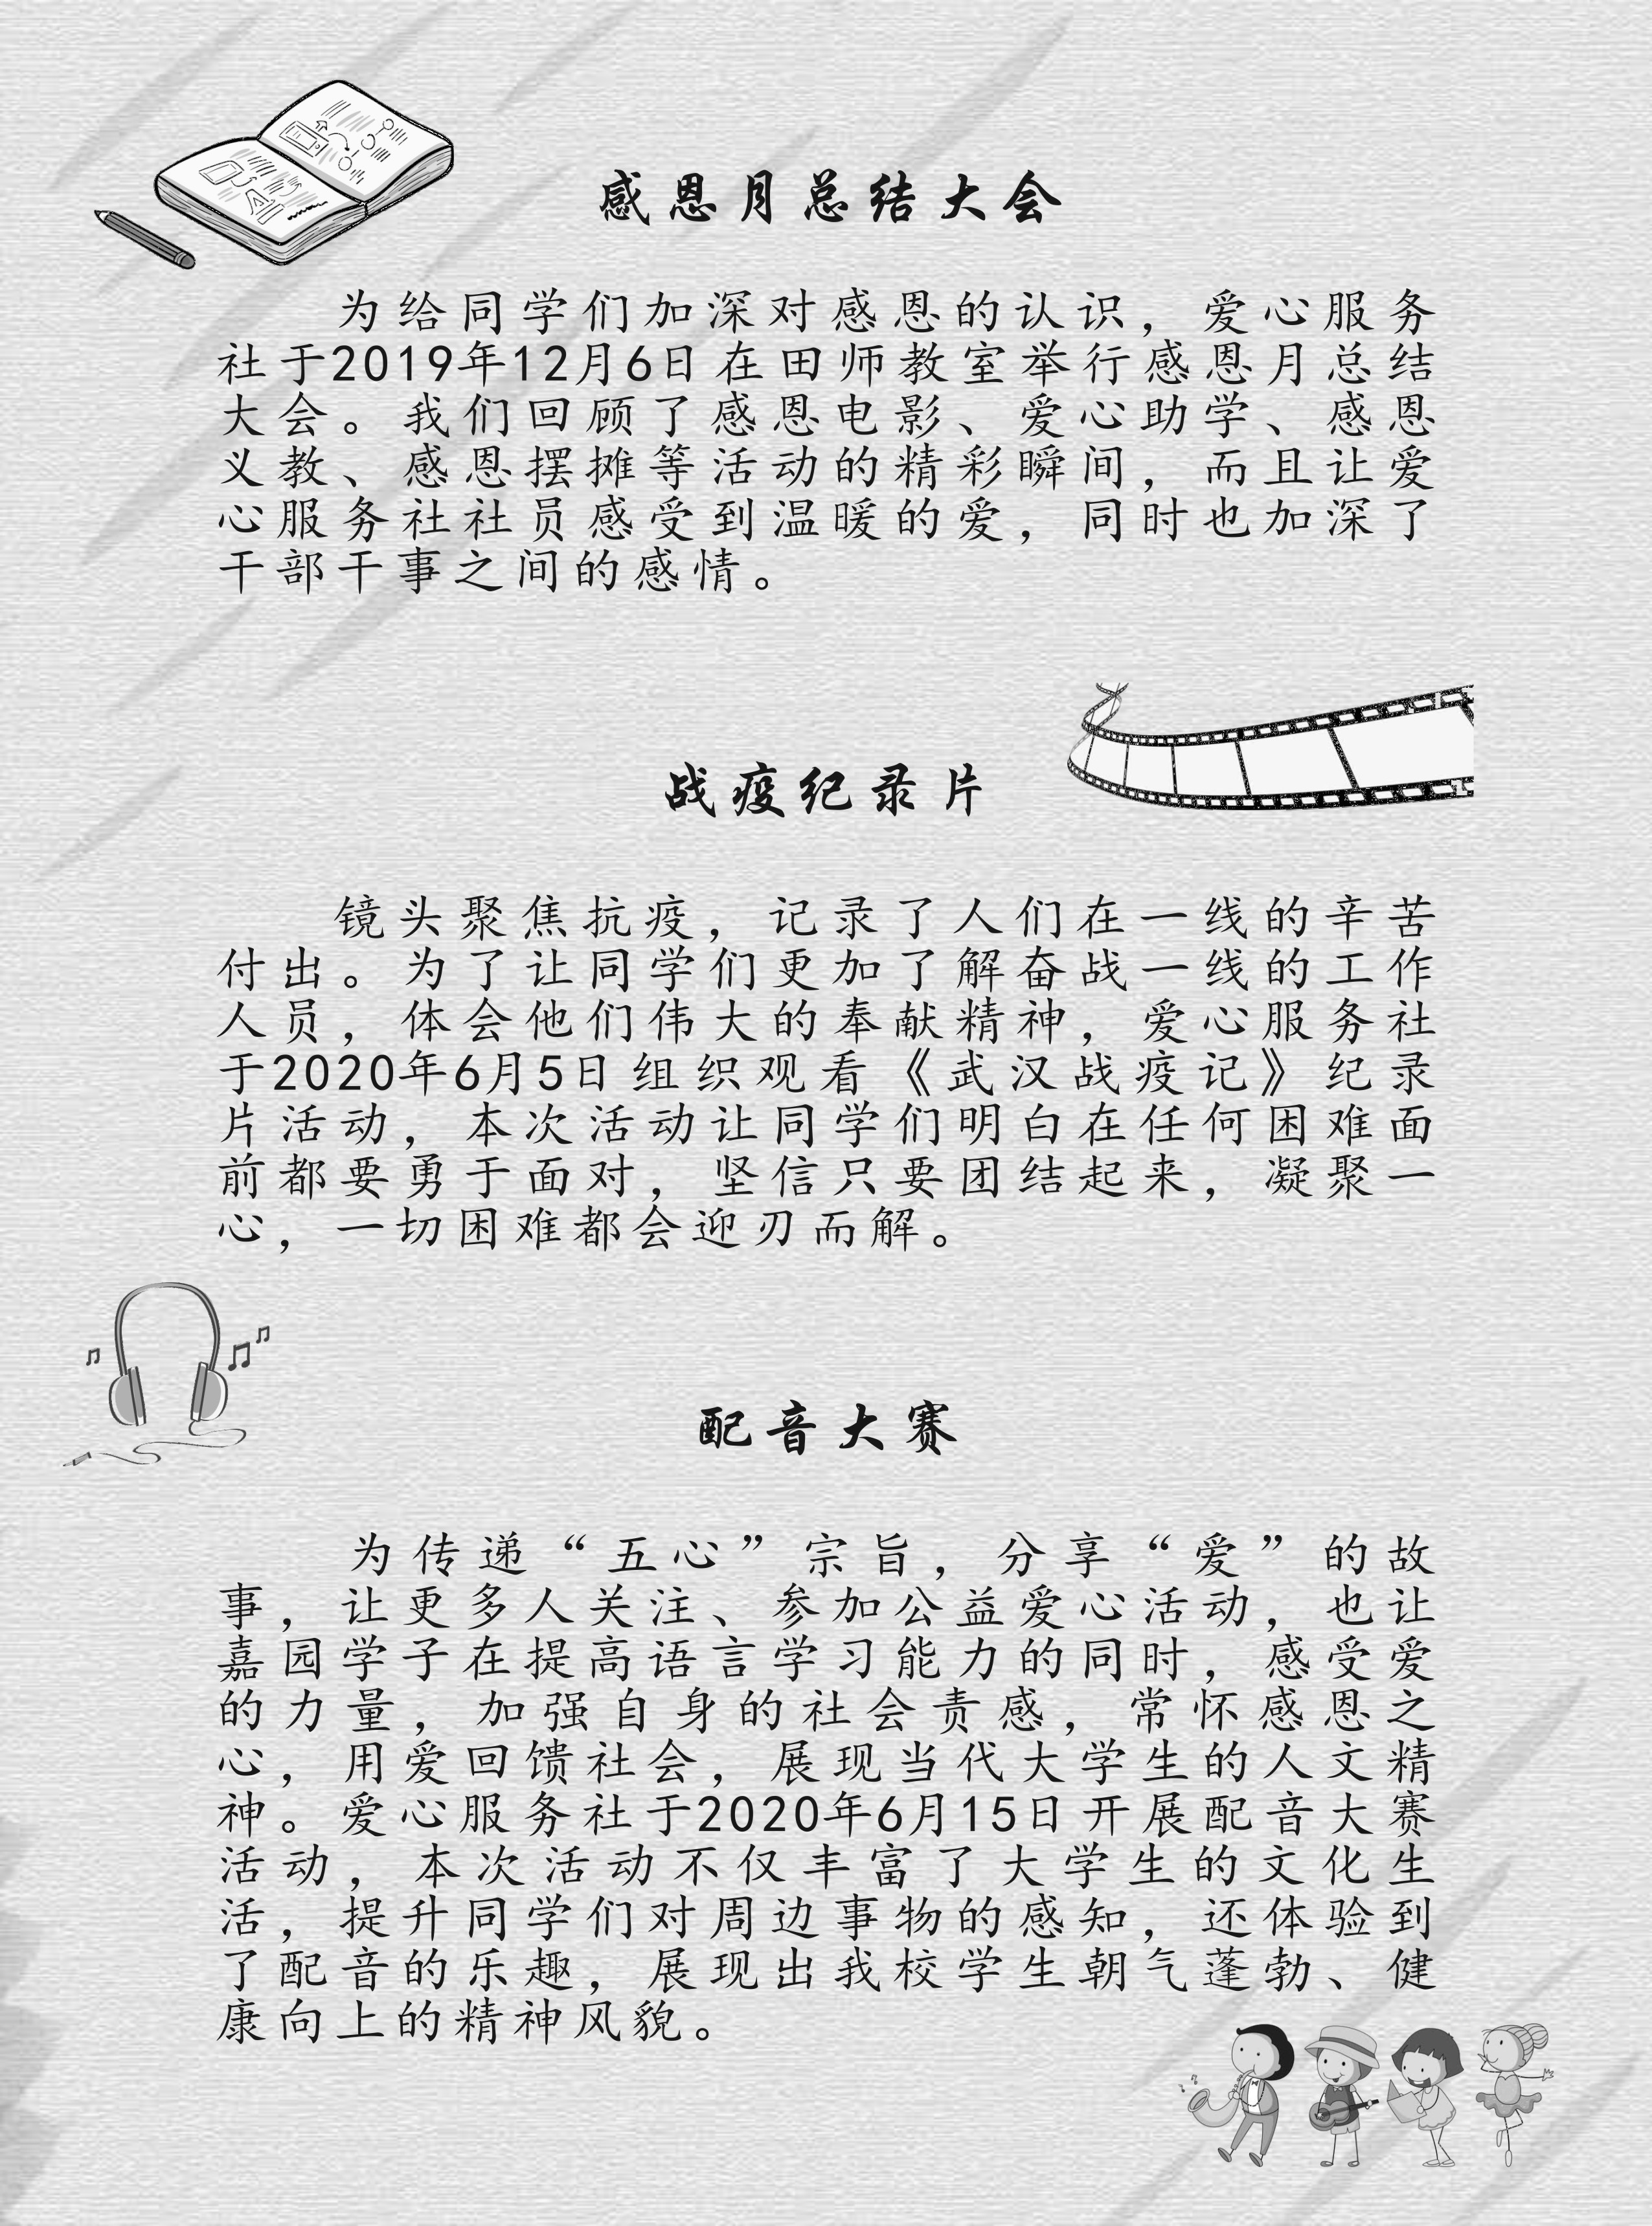 感恩月总结大会
为给同学们加深对感恩的认识，爱心服务
社于2019年12月6日在田师教室举行感恩月总结
大会。我们回顾了感恩电影、爱心助学、感恩
义教、感恩摆摊等活动的精彩瞬间，而且让爱
心服务社社员感受到温暖的爱，同时也加深了
干部干事之间的感情。
战疫纪录片
镜头聚焦抗疫，记录了人们在一线的辛苦
付出。为了让同学们更加了解奋战一线的工作
人员，体会他们伟大的奉献精神，爱心服务社
于2020年6月5日组织观看《武汉战疫记》纪录
片活动，本次活动让同学们明白在任何困难面
前都要勇于面对，坚信只要团结起来，凝聚一
心，一切困难都会迎刃而解。
配音大赛
为传递“五心”宗旨，分享“爱”的故
事，让更多人关注、参加公益爱心活动，也让
嘉园学子在提高语言学习能力的同时，感受爱
的力量，加强自身的社会责感，常怀感恩之
心，用爱回馈社会，展现当代大学生的人文精
神。爱心服务社于2020年6月15日开展配音大赛
活动，本次活动不仅丰富了大学生的文化生
活，提升同学们对周边事物的感知，还体验到
了配音的乐趣，展现出我校学生朝气蓬勃、健
康向上的精神风貌。